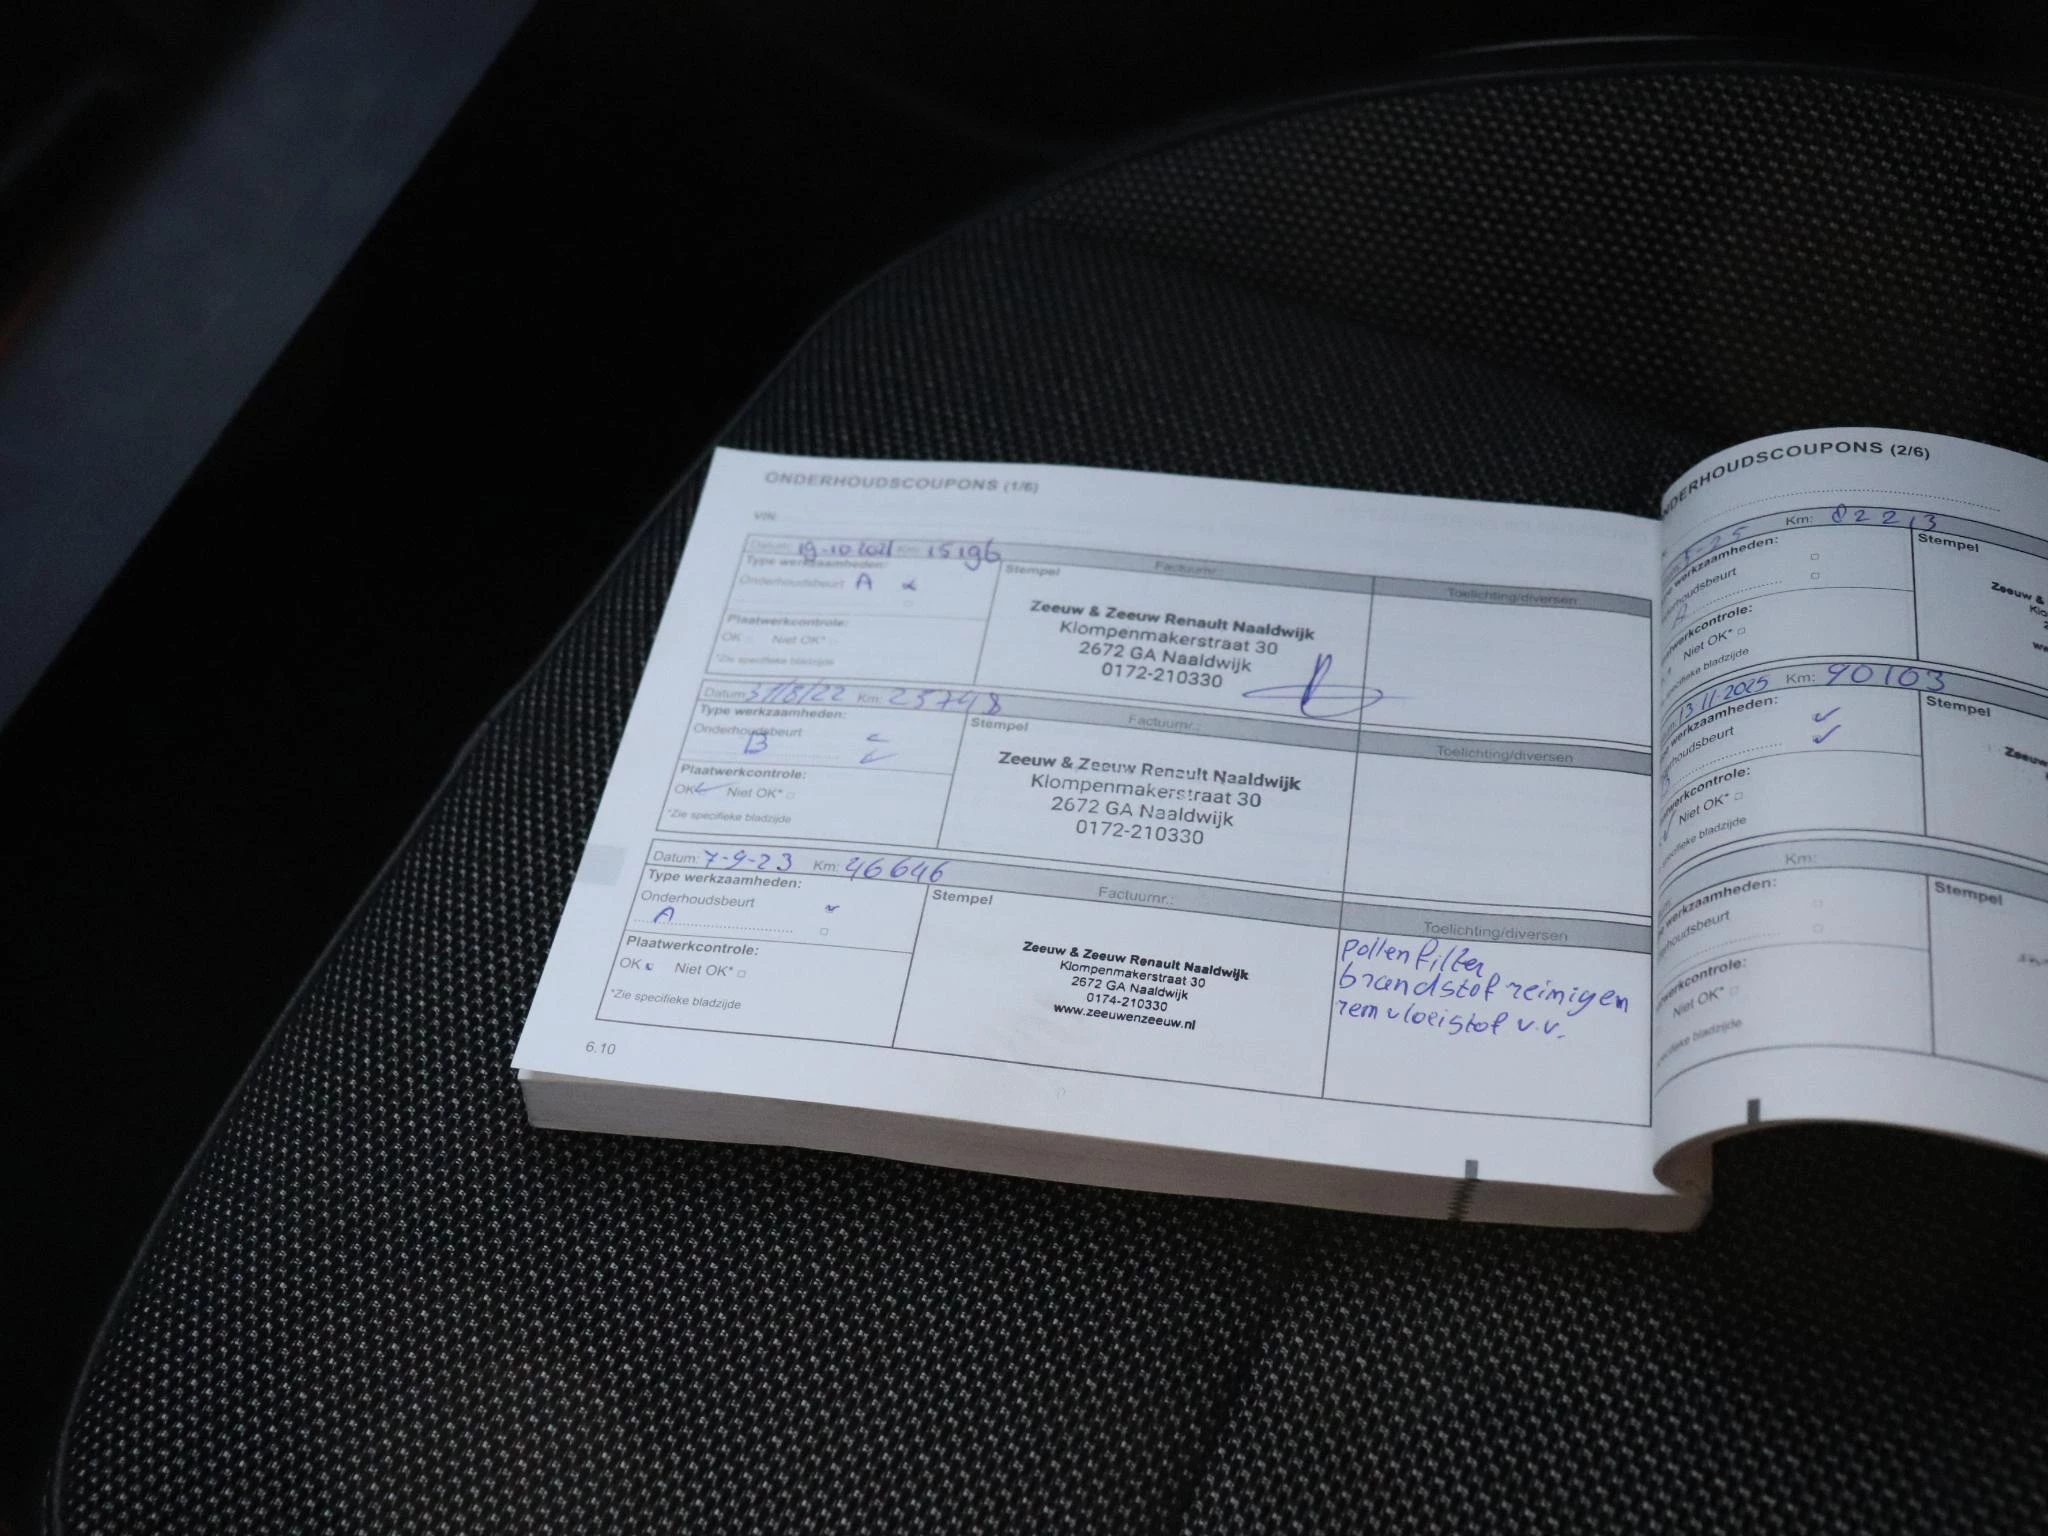 ONDERHOUDSCOUPONS (1/6)
VIN:
Datum: 19-10-2021 Km: 15196
Factuurnr.:
Type werkzaamheden:
Onderhoudsbeurt A
Stempel
Toelichting/diversen
Zeeuw & Zeeuw Renault Naaldwijk
Klompenmakerstraat 30
2672 GA Naaldwijk
0172-210330
Plaatwerkcontrole:
OK Niet OK*
*Zie specifieke bladzijde
Datum: 31/8/22 Km: 25748
Factuurnr.:
Type werkzaamheden:
Onderhoudsbeurt
B
Stempel
Toelichting/diversen
Zeeuw & Zeeuw Renault Naaldwijk
Klompenmakerstraat 30
2672 GA Naaldwijk
0172-210330
Plaatwerkcontrole:
OK Niet OK*
*Zie specifieke bladzijde
Datum: 7-9-23 Km: 46646
Factuurnr.:
Type werkzaamheden:
Onderhoudsbeurt
A
Stempel
Toelichting/diversen
Zeeuw & Zeeuw Renault Naaldwijk
Klompenmakerstraat 30
2672 GA Naaldwijk
0174-210330
www.zeeuwenzeeuw.nl
pollenfilter
brandstof reinigen
remvloeistof v.v.
Plaatwerkcontrole:
OK Niet OK*
*Zie specifieke bladzijde
6.10
NDERHOUDSCOUPONS (2/6)
Km: 82213
werkzaamheden:
Stempel
Zeeuw &
Niet OK*
bladzijde
13 11-2025 Km: 90103
werkzaamheden:
Stempel
Zeeuw
Niet OK*
bladzijde
Km:
werkzaamheden:
Stempel
Niet OK*
bladzijde